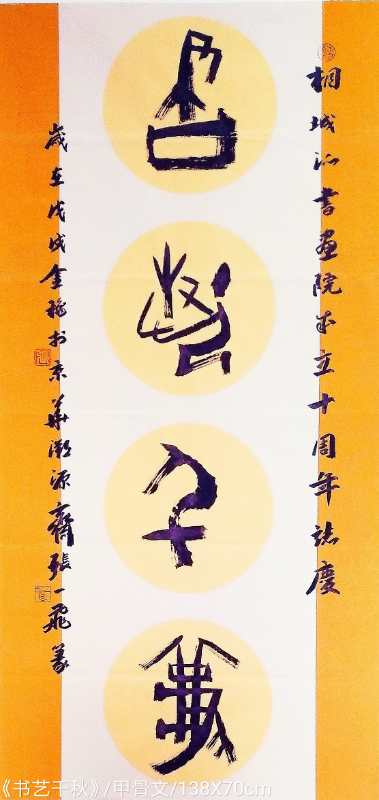 桐城派書畫院成立十周年誌慶
書藝千秋
歲在戊戌金秋於京華溯源齋張一飛篆
《书艺千秋》/甲骨文/138X70cm